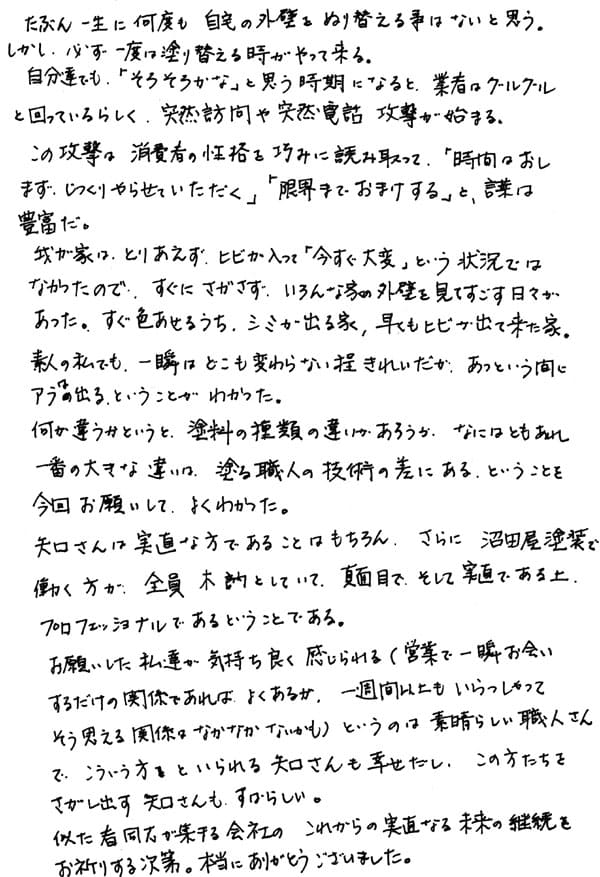 たぶん一生に何度も自宅の外壁をぬり替える事はないと思う。
しかし、必ず一度は塗り替える時がやって来る。
自分達でも、「そろそろかな」と思う時期になると、業者はグルグル
と回っているらしく、突然訪問や突然電話攻撃が始まる。
この攻撃は消費者の性格を巧みに読み取って、「時間はおし
まず、じっくりやらせていただく」「限界までおまけする」と、言葉は
豊富だ。
我が家は、とりあえず、ヒビが入って「今すぐ大変」という状況では
なかったので、すぐにさがさず、いろんな家の外壁を見てすごす日々が
あった。すぐ色あせるうち、シミが出る家、早くもヒビが出て来た家。
素人の私でも、一瞬はどこも変わらない程きれいだが、あっという間に
アラの出る、ということがわかった。
何が違うかというと、塗料の種類の違いがあろうが、なにはともあれ
一番の大きな違いは、塗る職人の技術の差にある、ということを
今回お願いして、よくわかった。
矢口さんは実直な方であることはもちろん、さらに沼田屋塗装で
働く方が、全員木訥としていて、真面目で、そして実直である上、
プロフェッショナルであるということである。
お願いした私達が気持ち良く感じられる(営業で一瞬お会い
するだけの関係であれば、よくあるが、一週間以上もいらっしゃって
そう思える関係はなかなかないかも)というのは素晴らしい職人さん
で、こういう方をといられる矢口さんも幸せだし、この方たちを
さがし出す矢口さんも、すばらしい。
似た者同志が集する会社のこれからの実直なる未来の継続を
お祈りする次第。本当にありがとうございました。